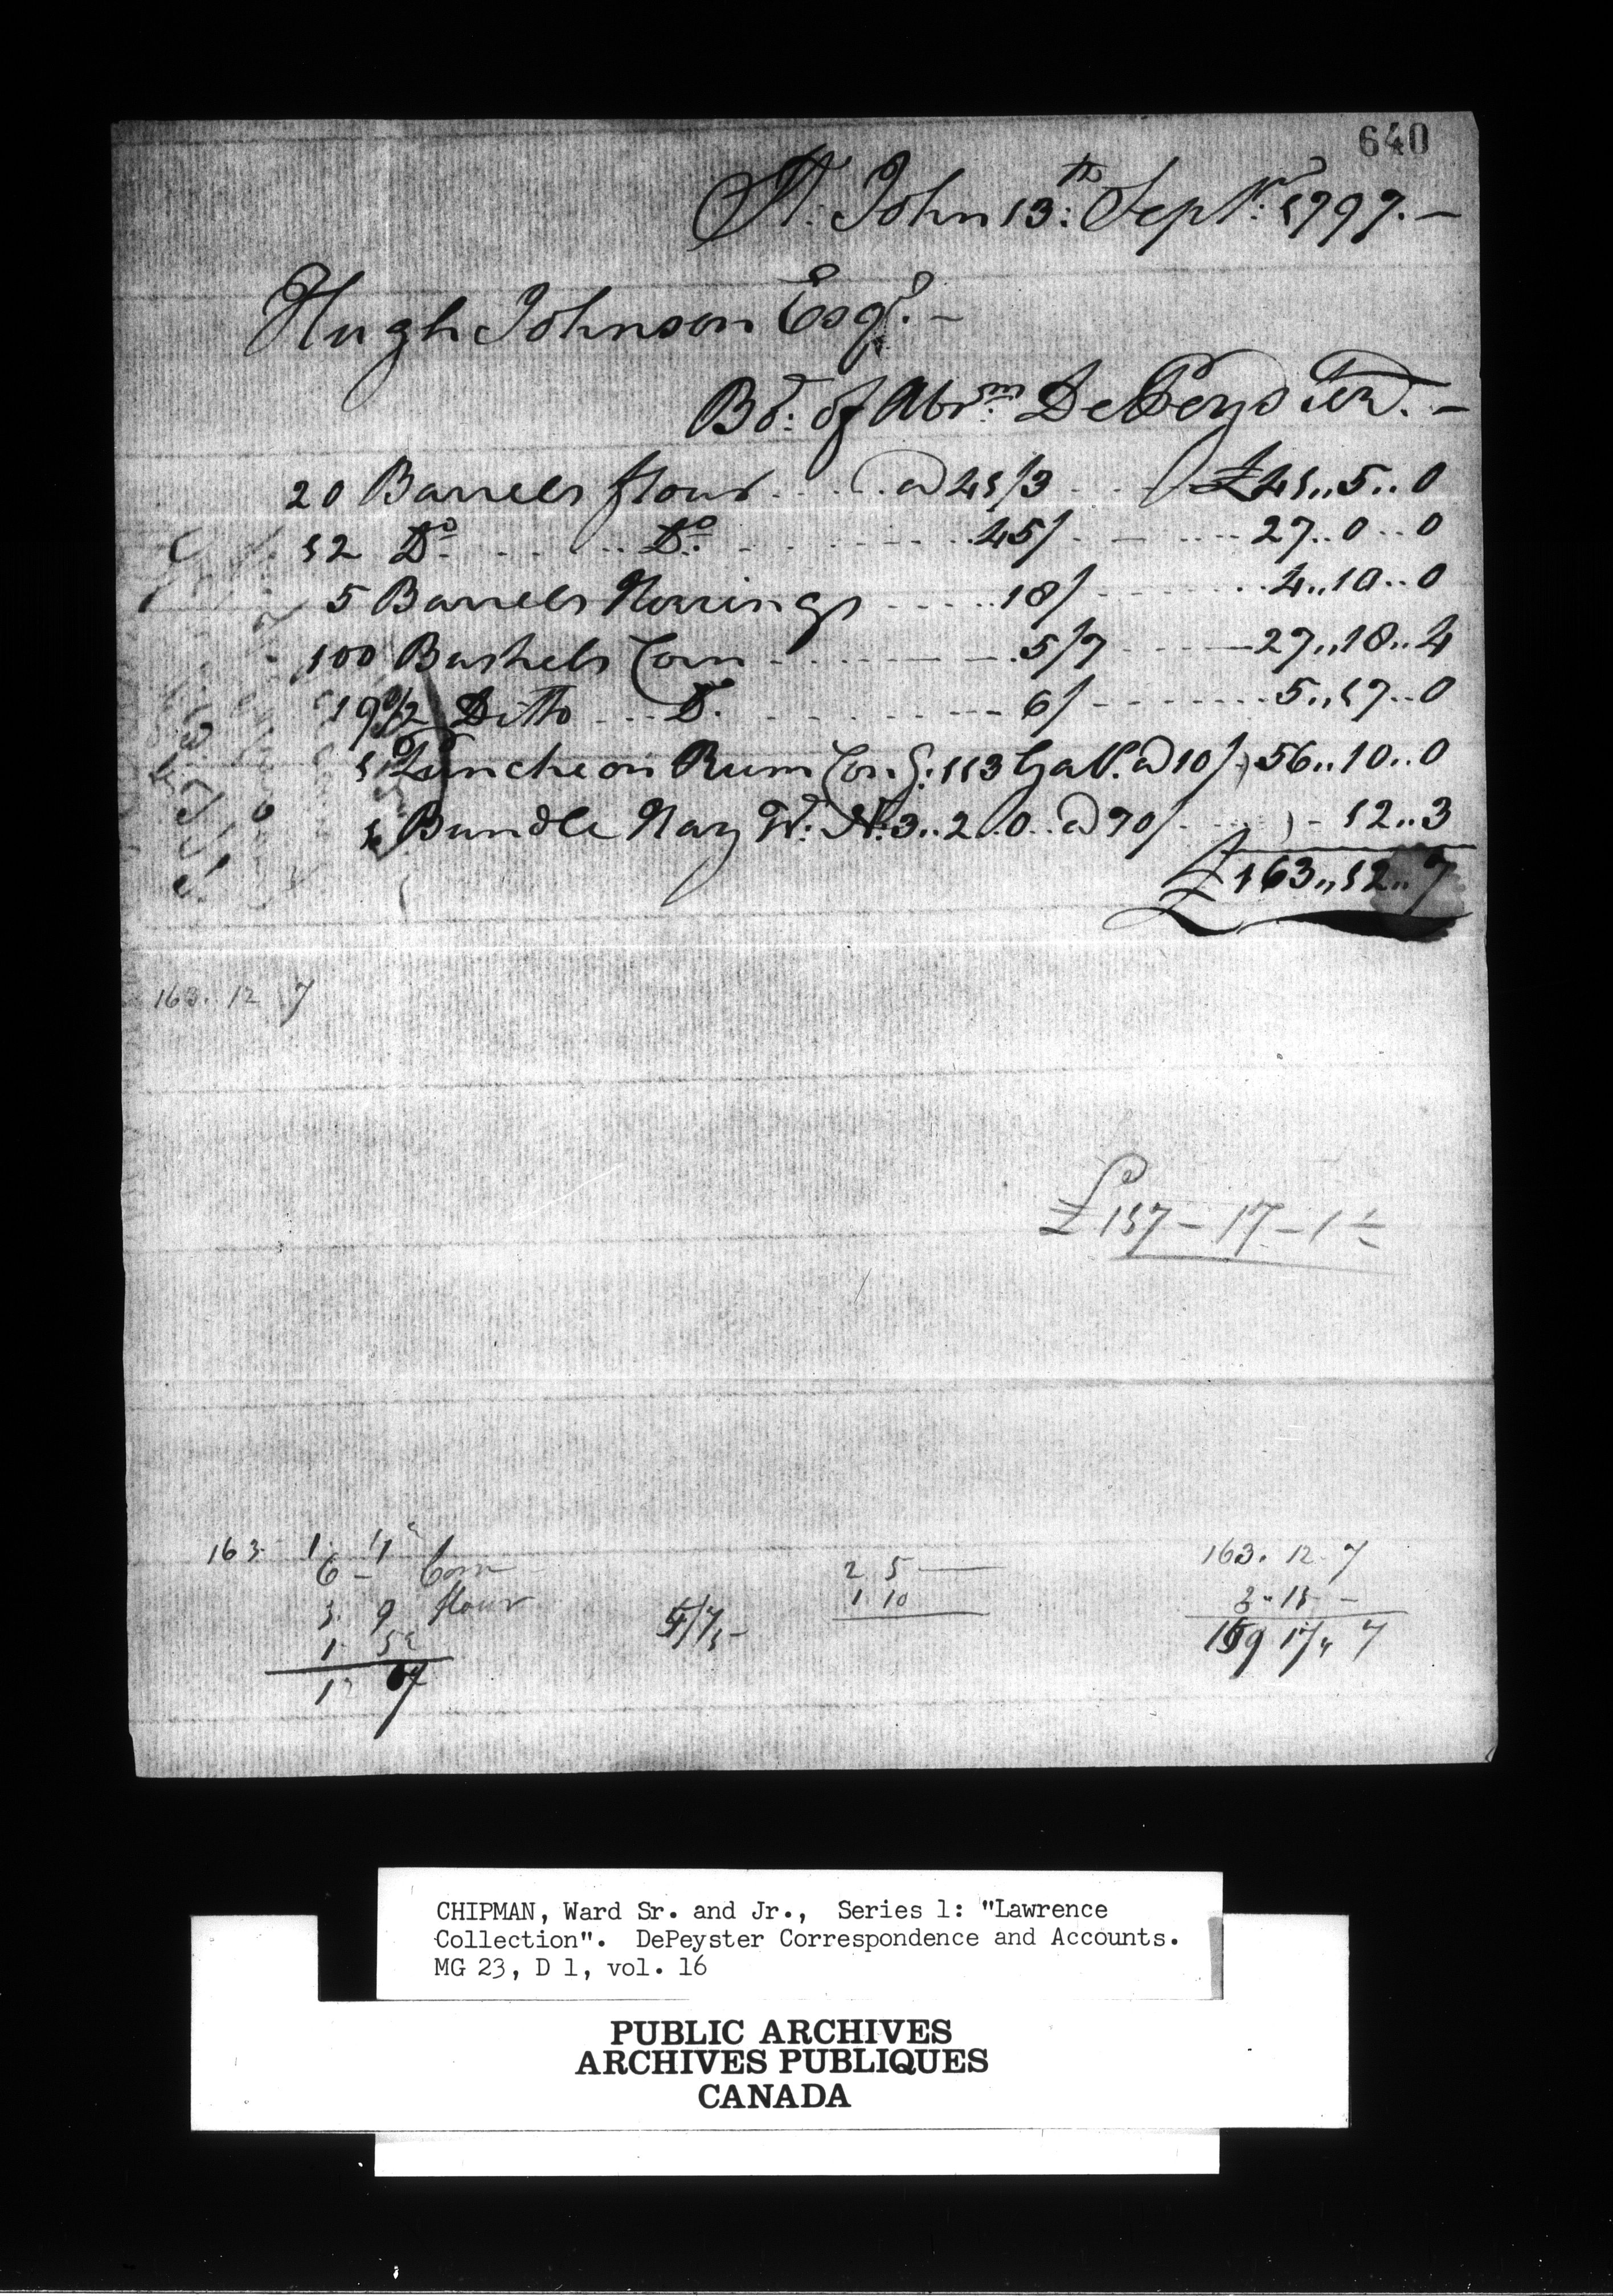 640
St. John 13th: Septr: 1797.—
Hugh Johnson Esqr.—
Bt: of Abrm: DePeyster.—
20 Barrels flour . . . . @ 41/3 . . . £41,,5..0
12 Do . . . . . . Do . . . . . . 45/ . . . . . 27..0..0
5 Barrels Herrings . . . . . 18/ . . . . . . 4..10..0
100 Bushels Corn . . . . . . 5/7 . . . . 27,,18..4
19 1/2 Ditto . . . Do. . . . . . . 6/ . . . . . . 5,,17..0
1 Puncheon Rum Cong. 113 Gals. @ 10/ 56..10..0
1 Bundle Hay Wt: N: 3..2..0.. @ 70/ . . . . 12..3
£163,,12,,7
163.. 12 7
£157 – 17 – 1 1/2
163 1. 4
6 – Corn
3. 9 flour
5/7
2 5 —
1 10
163. 12. 7
3 " 15 –
159 17 " 7
CHIPMAN, Ward Sr. and Jr., Series 1: "Lawrence
Collection". DePeyster Correspondence and Accounts.
MG 23, D 1, vol. 16
PUBLIC ARCHIVES
ARCHIVES PUBLIQUES
CANADA